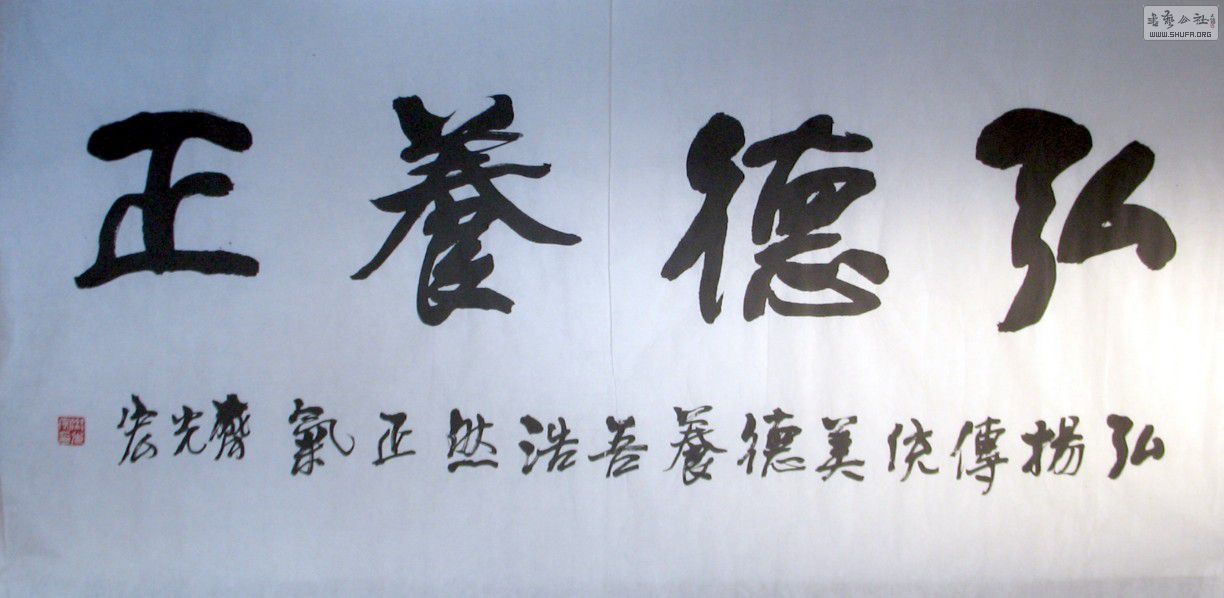 弘德養正
弘揚傳统美德養吾浩然正氣齊光宏
书艺公社
WWW.SHUFA.ORG